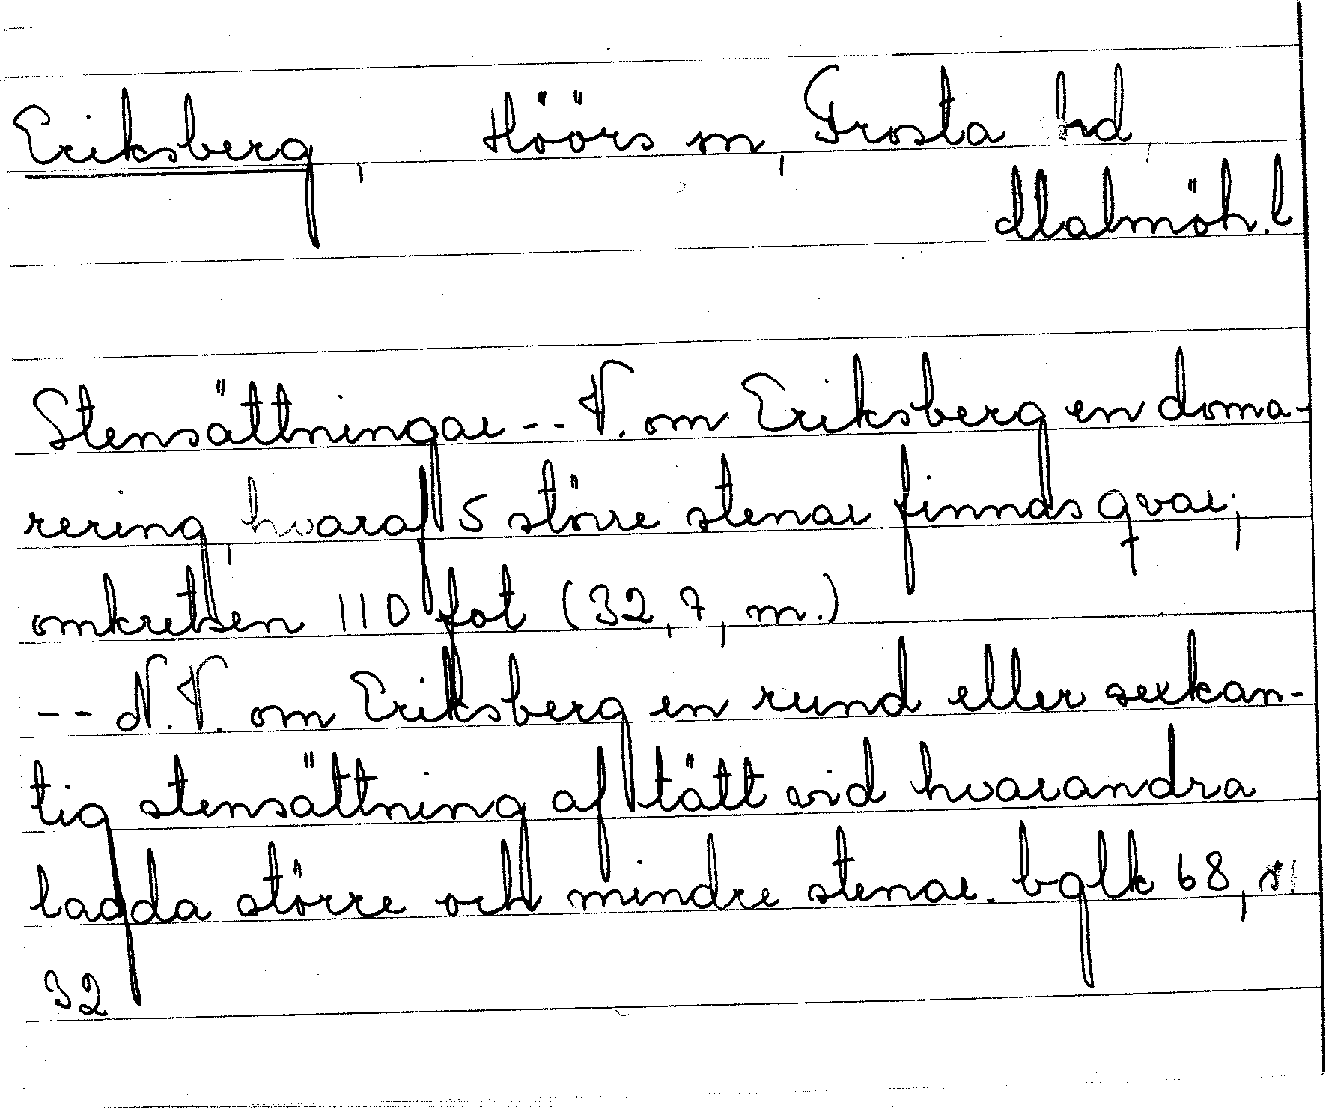 Eriksberg, Höörs sn, Frosta hd,
Malmöh. l
Stensättningar -- V. om Eriksberg en doma-
rering, hvaraf 5 större stenar finnas qvar;
omkretsen 110 fot (32,7, m.)
-- N.V. om Eriksberg en rund eller sexkan-
tig stensättning af tätt vid hvarandra
lagda större och mindre stenar. bglk 68, s
32